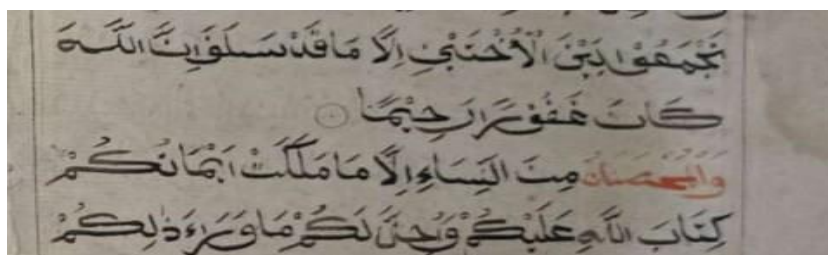 تَجْمَعُوْا بَيْنَ الْاُخْتَيْنِ اِلَّا مَا قَدْ سَلَفَ اِنَّ اللّٰهَ
كَانَ غَفُوْرًا رَّحِيْمًا
وَالْمُحْصَنَاتُ مِنَ النِّسَاءِ اِلَّا مَا مَلَكَتْ اَيْمَانُكُمْ
كِتَابَ اللّٰهِ عَلَيْكُمْ وَاُحِلَّ لَكُمْ مَا وَرَاءَ ذٰلِكُمْ